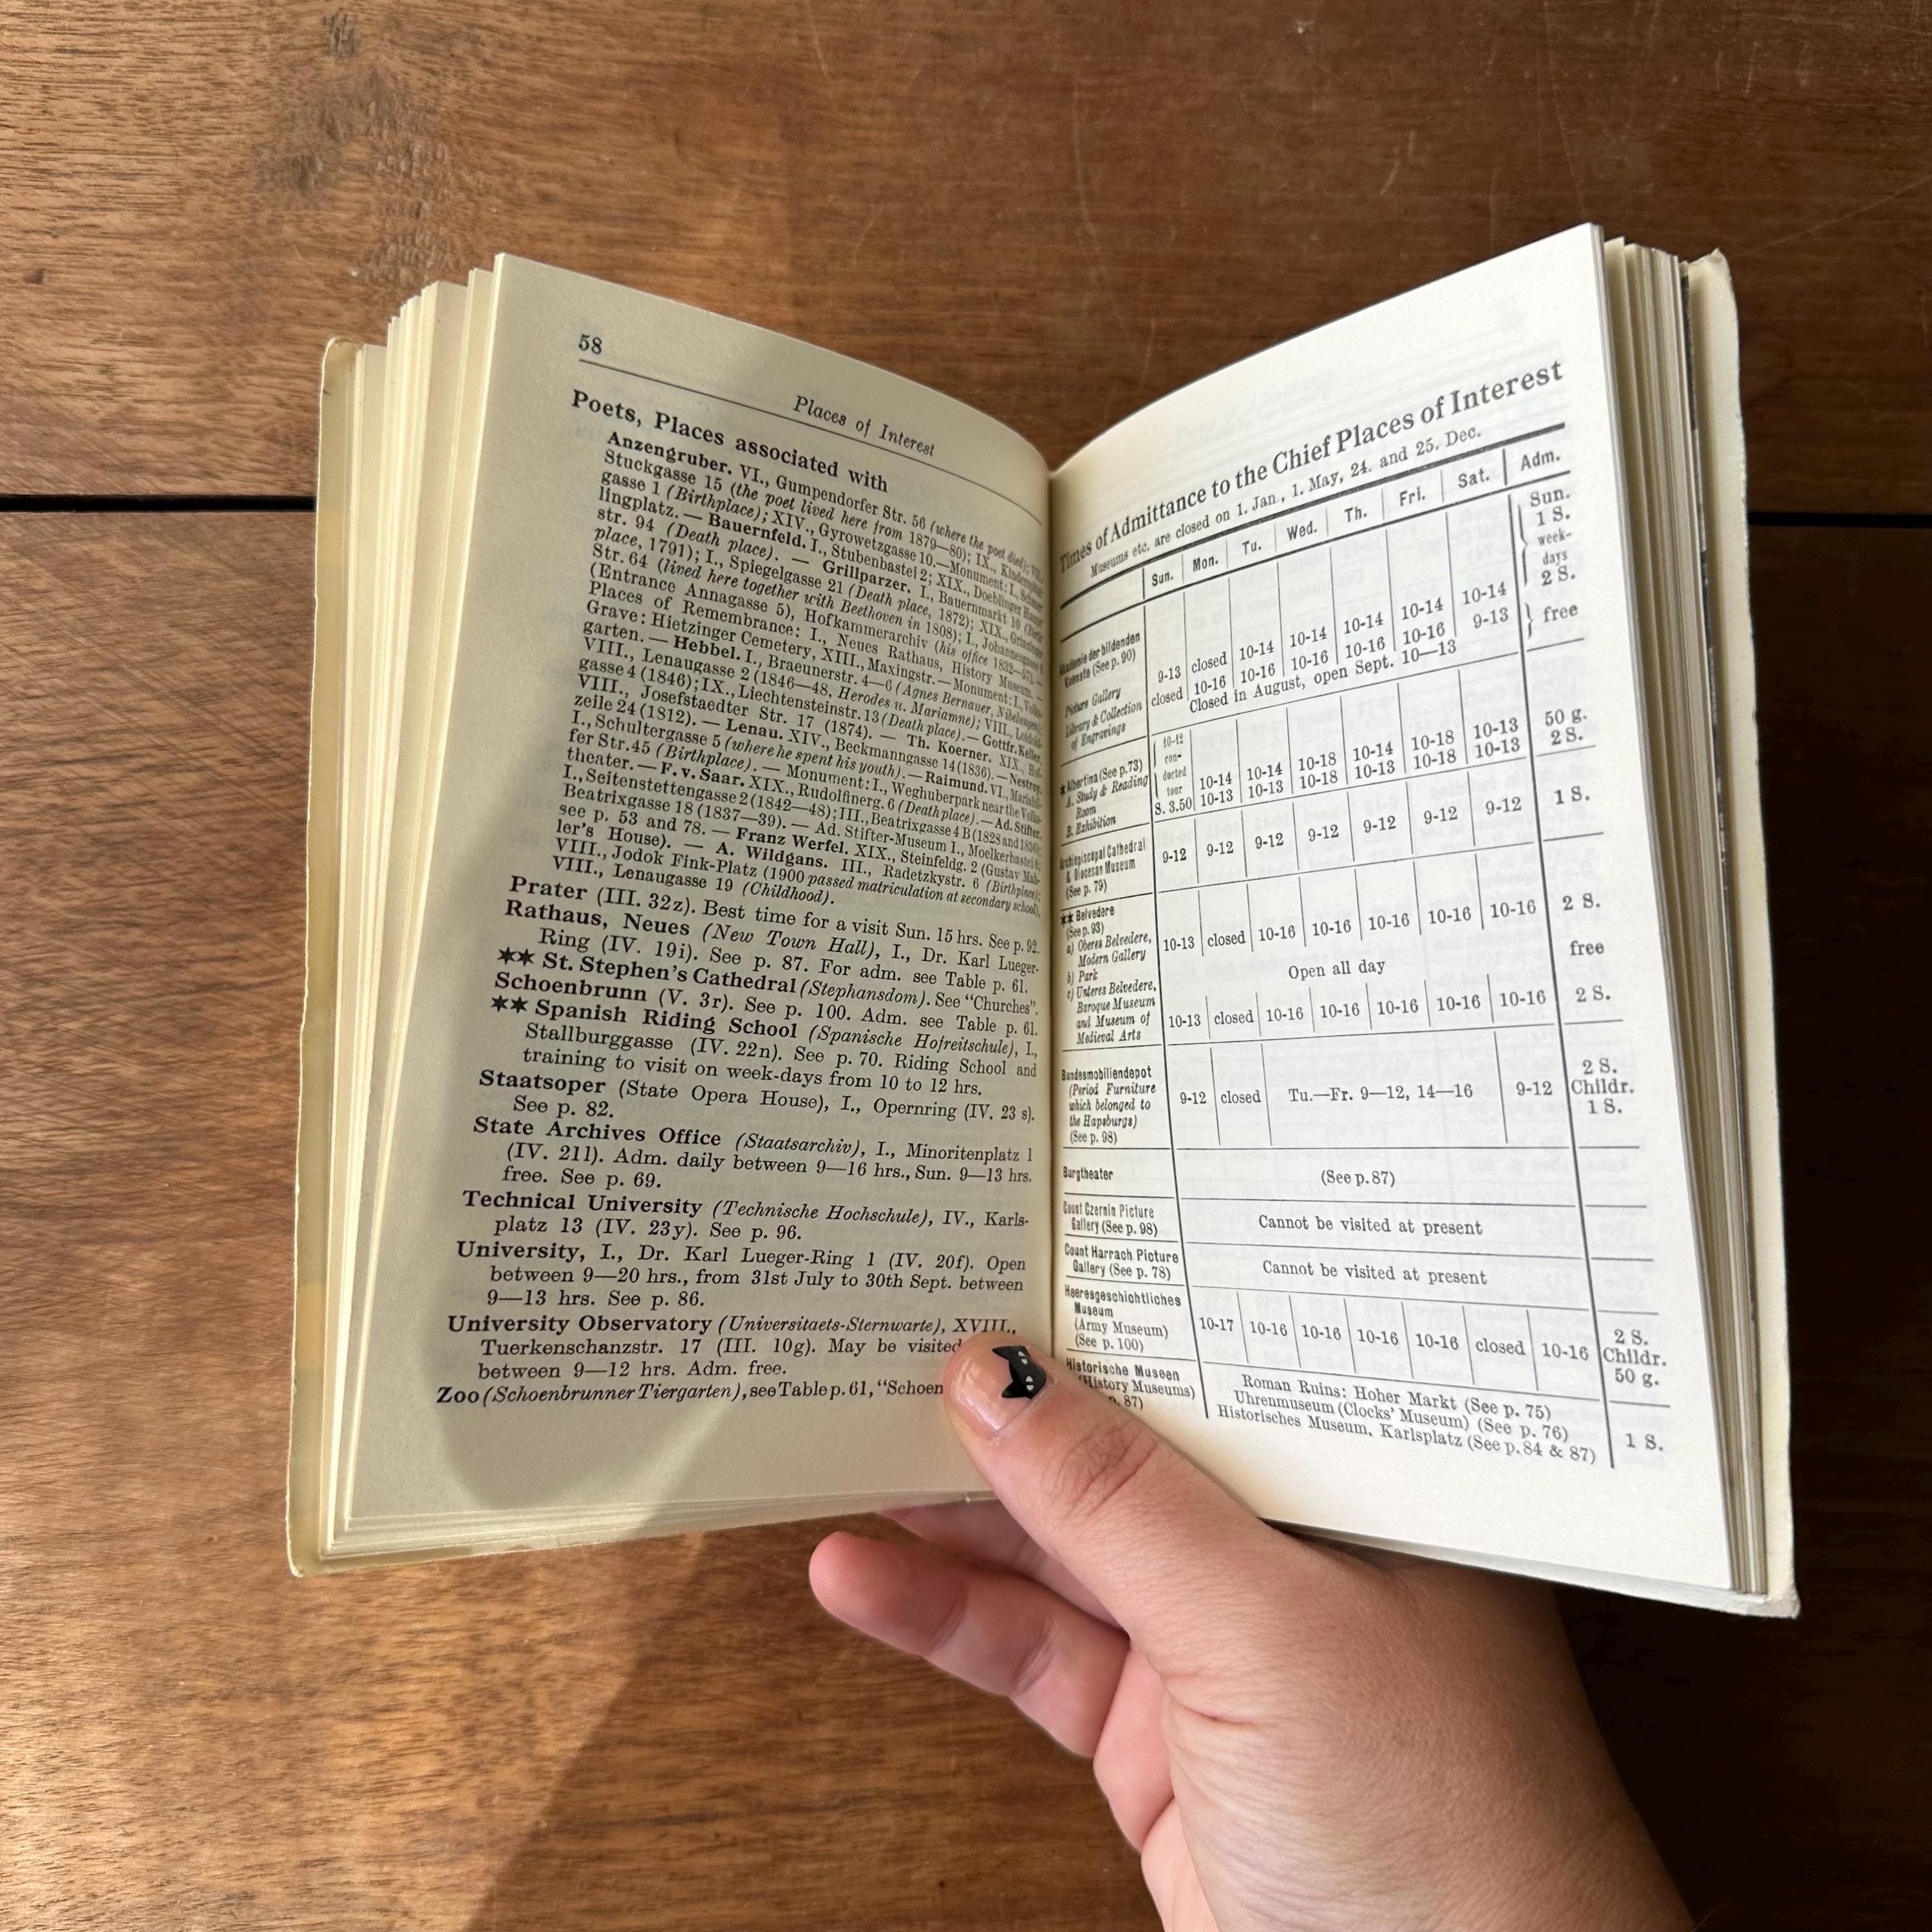 58
Places of Interest
Poets, Places associated with
Anzengruber. VI., Gumpendorfer Str. 56 (where the poet died);
Stuckgasse 15 (the poet lived here from 1879—80); IX.,
gasse 1 (Birthplace); XIV., Gyrowetzgasse 10.—Monument: I.,
lingplatz. — Bauernfeld. I., Stubenbastei 2; XIX., Doeblinger
str. 94 (Death place). — Grillparzer. I., Bauernmarkt 10
place, 1791); I., Spiegelgasse 21 (Death place, 1872); XIX.,
Str. 64 (lived here together with Beethoven in 1808); I.,
(Entrance Annagasse 5), Hofkammerarchiv (his office
Places of Remembrance: I., Neues Rathaus, History Museum. —
Grave: Hietzinger Cemetery, XIII., Maxingstr. — Monument: I.,
garten. — Hebbel. I., Braeunerstr. 4—6 (Agnes Bernauer,
VIII., Lenaugasse 2 (1846—48, Herodes u. Mariamne); VIII.,
gasse 4 (1846); IX., Liechtensteinstr. 13 (Death place). — Gottfr. Keller.
VIII., Josefstaedter Str. 17 (1874). — Th. Koerner. XIX.,
zeile 24 (1812). — Lenau. XIV., Beckmanngasse 14 (1836). — Nestroy.
I., Schultergasse 5 (where he spent his youth). — Raimund. VI.,
fer Str. 45 (Birthplace). — Monument: I., Weghuberpark near the
theater. — F. v. Saar. XIX., Rudolfinerg. 6 (Death place). — Ad. Stifter.
I., Seitenstettengasse 2 (1842—48); III., Beatrixgasse 4 B (1828 and
Beatrixgasse 18 (1837—39). — Ad. Stifter-Museum I., Moelkerbastei 8;
see p. 53 and 78. — Franz Werfel. XIX., Steinfeldg. 2 (Gustav Mah-
ler's House). — A. Wildgans. III., Radetzkystr. 6 (Birthplace);
VIII., Jodok Fink-Platz (1900 passed matriculation at secondary school),
VIII., Lenaugasse 19 (Childhood).
Prater (III. 32z). Best time for a visit Sun. 15 hrs. See p. 92.
Rathaus, Neues (New Town Hall), I., Dr. Karl Lueger-
Ring (IV. 19i). See p. 87. For adm. see Table p. 61.
** St. Stephen's Cathedral (Stephansdom). See "Churches".
Schoenbrunn (V. 3r). See p. 100. Adm. see Table p. 61.
** Spanish Riding School (Spanische Hofreitschule), I.,
Stallburggasse (IV. 22n). See p. 70. Riding School and
training to visit on week-days from 10 to 12 hrs.
Staatsoper (State Opera House), I., Opernring (IV. 23 s).
See p. 82.
State Archives Office (Staatsarchiv), I., Minoritenplatz 1
(IV. 21l). Adm. daily between 9—16 hrs., Sun. 9—13 hrs.
free. See p. 69.
Technical University (Technische Hochschule), IV., Karls-
platz 13 (IV. 23y). See p. 96.
University, I., Dr. Karl Lueger-Ring 1 (IV. 20f). Open
between 9—20 hrs., from 31st July to 30th Sept. between
9—13 hrs. See p. 86.
University Observatory (Universitaets-Sternwarte), XVIII.,
Tuerkenschanzstr. 17 (III. 10g). May be visited
between 9—12 hrs. Adm. free.
Zoo (Schoenbrunner Tiergarten), see Table p. 61, "Schoen
Times of Admittance to the Chief Places of Interest
Museums etc. are closed on 1. Jan., 1. May, 24. and 25. Dec.
Sun. Mon. Tu. Wed. Th. Fri. Sat. Adm.
Akademie der bildenden
Kuenste (See p. 90)
Picture Gallery 9-13 closed 10-14 10-14 10-14 10-14 10-14 Sun. 1 S. week-days 2 S.
Library & Collection of Engravings closed 10-16 10-16 10-16 10-16 10-16 9-13 free
Closed in August, open Sept. 10—13
* Albertina (See p. 73) 10-12 con-ducted tour S. 3.50
A. Study & Reading Room 10-14 10-14 10-18 10-14 10-18 10-13 50 g.
B. Exhibition 10-13 10-13 10-18 10-13 10-18 10-13 2 S.
Archiepiscopal Cathedral
& Diocesan Museum
(See p. 79) 9-12 9-12 9-12 9-12 9-12 9-12 9-12 1 S.
** Belvedere
(See p. 93)
a) Oberes Belvedere,
Modern Gallery 10-13 closed 10-16 10-16 10-16 10-16 10-16 2 S.
b) Park Open all day free
c) Unteres Belvedere,
Baroque Museum
and Museum of
Medieval Arts 10-13 closed 10-16 10-16 10-16 10-16 10-16 2 S.
Bundesmobiliendepot
(Period Furniture
which belonged to
the Hapsburgs)
(See p. 98) 9-12 closed Tu.—Fr. 9—12, 14—16 9-12 2 S. Childr. 1 S.
Burgtheater (See p. 87)
Count Czernin Picture
Gallery (See p. 98) Cannot be visited at present
Count Harrach Picture
Gallery (See p. 78) Cannot be visited at present
Heeresgeschichtliches
Museum
(Army Museum)
(See p. 100) 10-17 10-16 10-16 10-16 10-16 closed 10-16 2 S. Childr. 50 g.
Historische Museen
(History Museums)
p. 87)
Roman Ruins: Hoher Markt (See p. 75)
Uhrenmuseum (Clocks' Museum) (See p. 76)
Historisches Museum, Karlsplatz (See p. 84 & 87) 1 S.